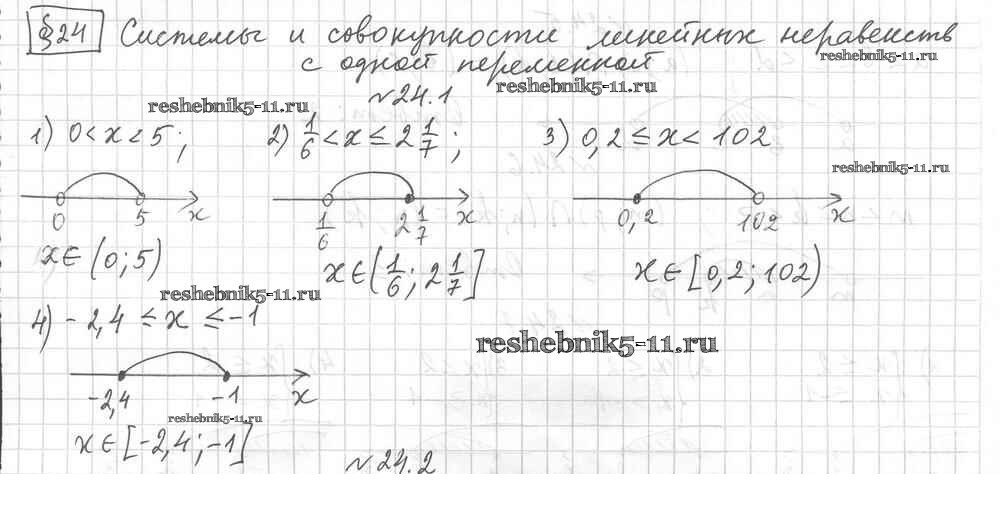 §24 Системы и совокупности линейных неравенств
reshebnik5-11.ru
с одной переменной
reshebnik5-11.ru
reshebnik5-11.ru
№24.1
1) 0 < x < 5; 2) 1/6 < x ≤ 2 1/7; 3) 0,2 ≤ x < 102
reshebnik5-11.ru
0 5 x 1/6 2 1/7 x 0,2 102 x
x ∈ (0; 5) x ∈ (1/6; 2 1/7] x ∈ [0,2; 102)
reshebnik5-11.ru
4) -2,4 ≤ x ≤ -1
reshebnik5-11.ru
-2,4 -1 x
reshebnik5-11.ru
x ∈ [-2,4; -1]
№24.2